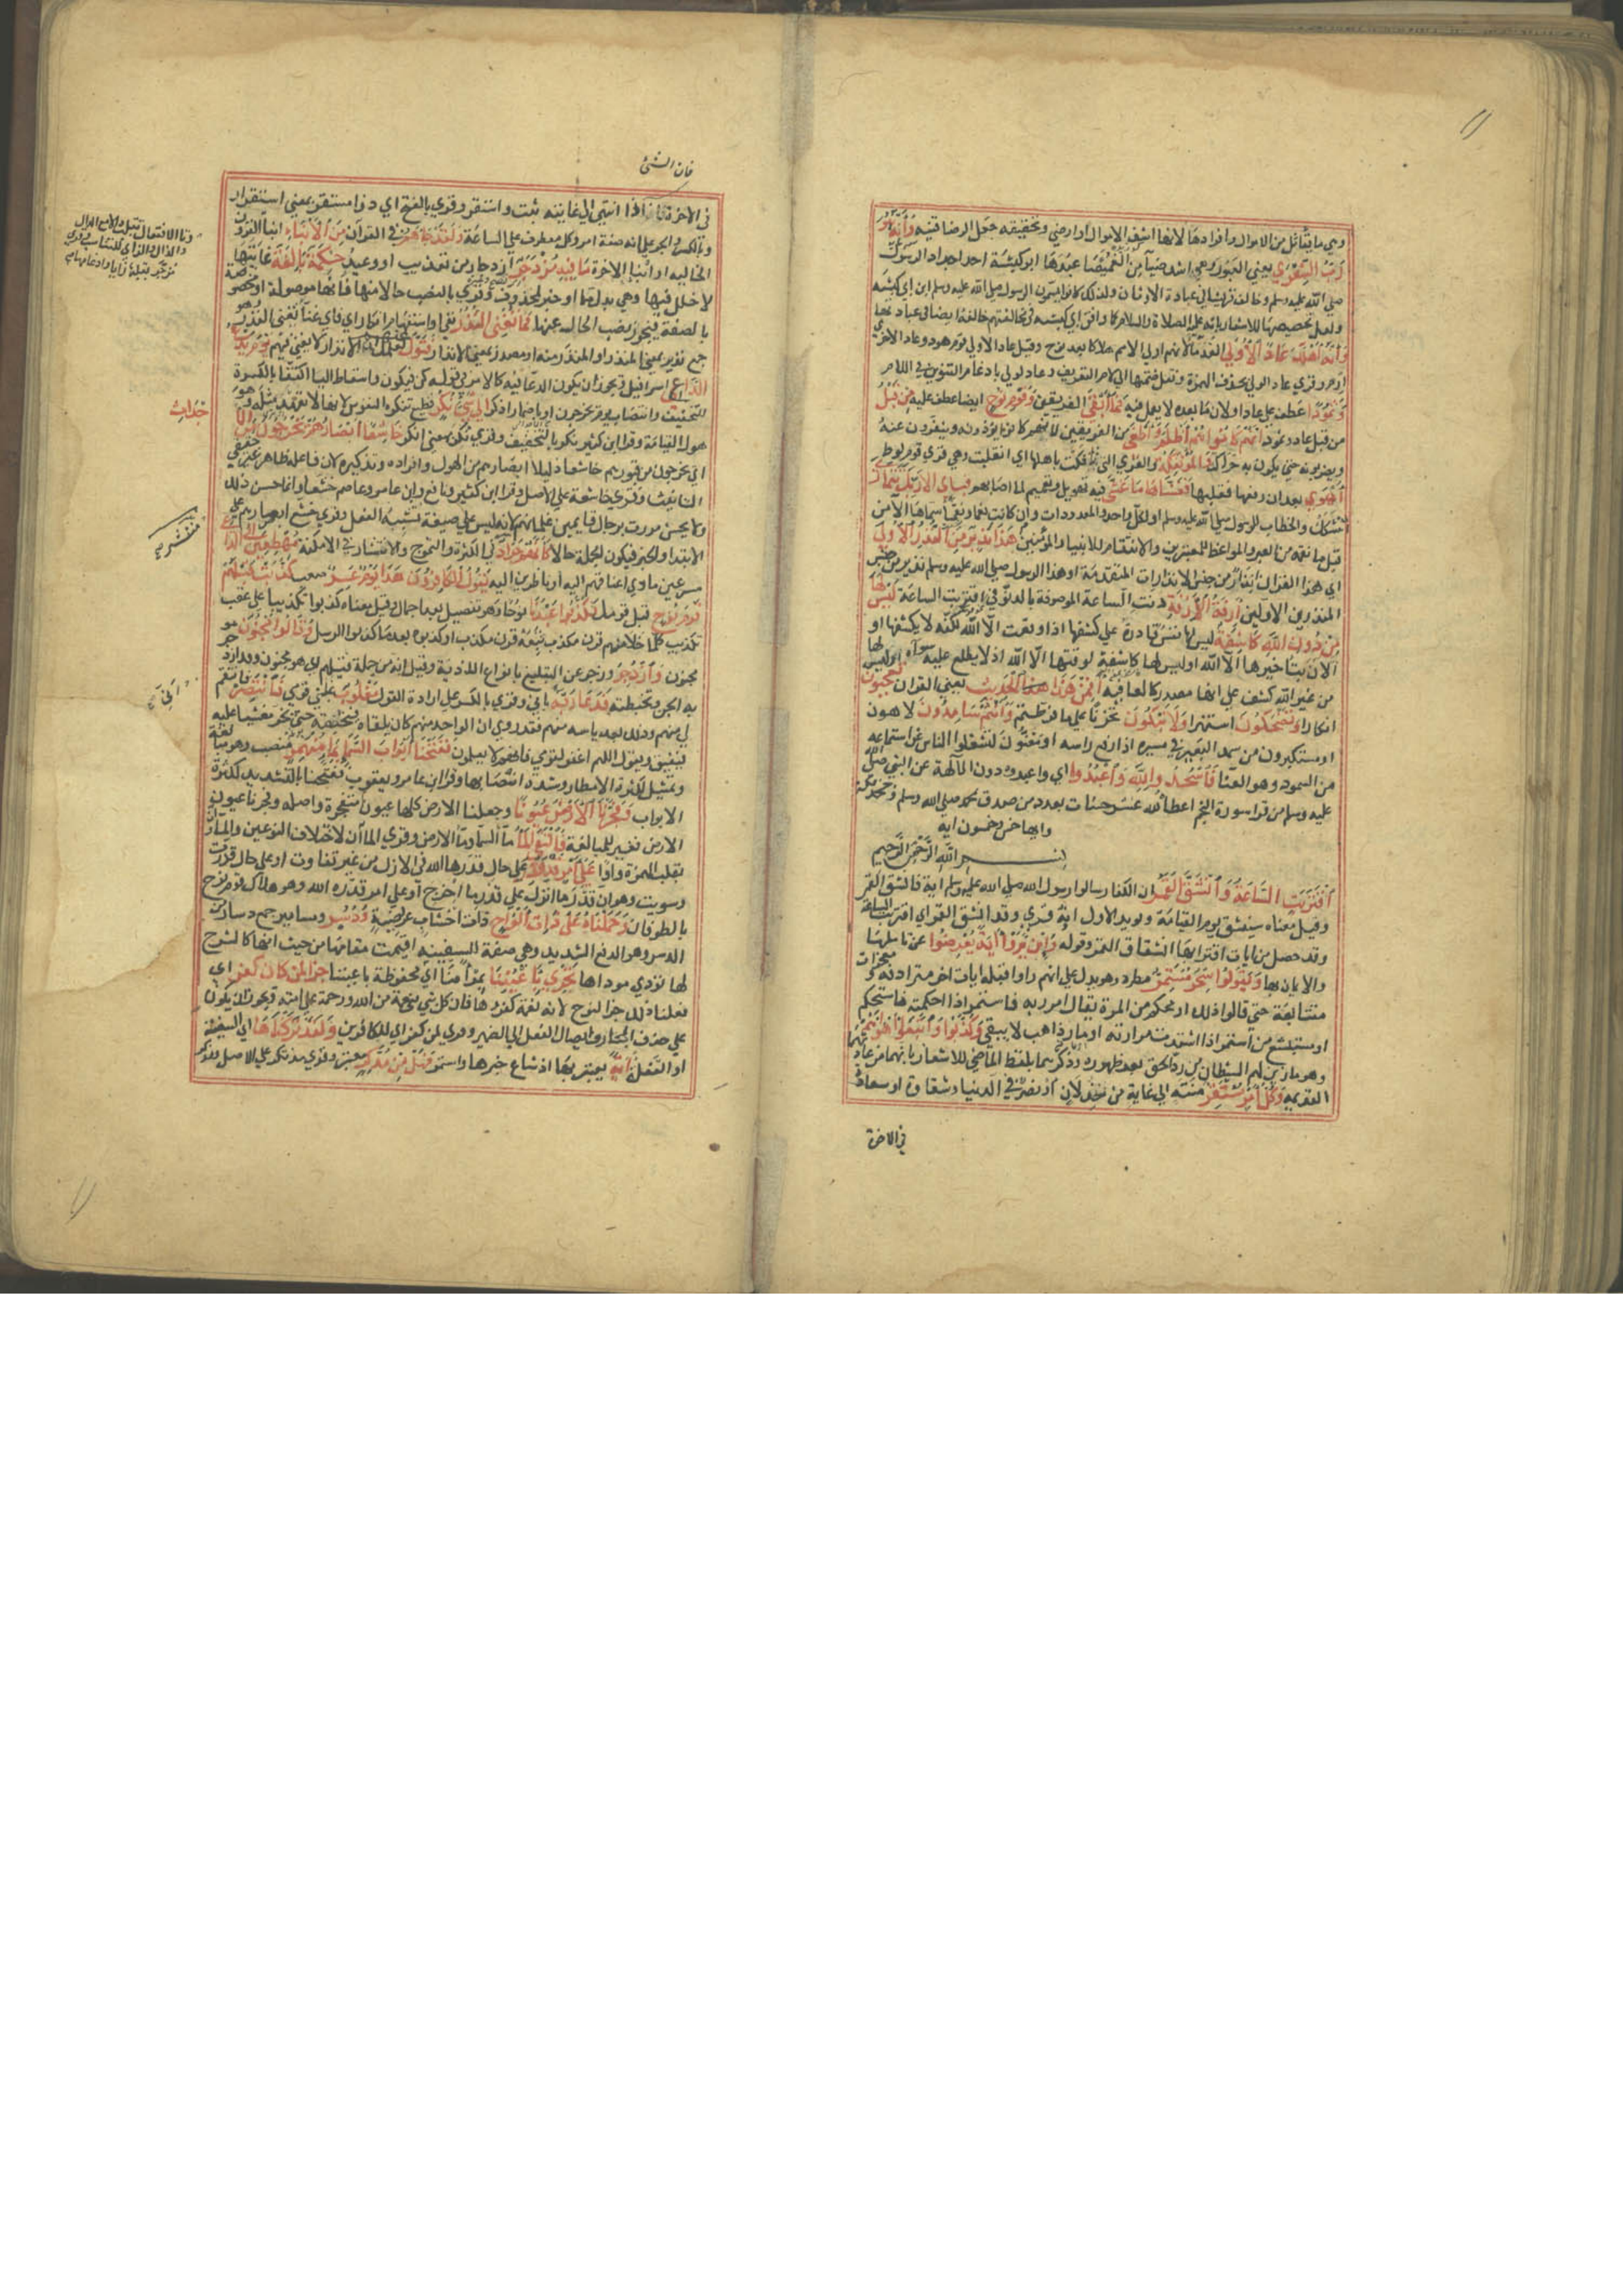 وهي ما يتأثل من الاموال وافرادها لانها اشف الاموال او ارضي وتحقيقه جعل الرضا قنية وَأَنَّهُ هُوَ
رَبُّ الشِّعْرَي يعني العبور وهي اشد ضياء من الغميصا عبدها ابو كبشة احد اجداد الرسول
صلي الله عليه وسلم وخالف قريشا في عبادة الاوثان ولذلك كانوا يسمون الرسول صلي الله عليه وسلم ابن ابي كبشه
ولعل تخصيصها للاشعار بانه عليه الصلاة والسلام وان وافق ابي كبشه في مخالفتهم خالفه ايضا في عبادتها
وَأَنَّهُ أَهْلَكَ عَادًا الْأُولَي القدما لانهم اولي الامم هلاكا بعد نوح وقيل عاد الاولي قوم هود وعاد الاخري
ارم وقري عاد الولي بحذف الهمزة ونقل ضمتها الي لام التعريف وعاد لولي بادغام التنوين في اللام
وَثَمُودًا عطف علي عادا ولان ما بعده لا يعمل فيه فَمَا أَبْقَي الفريقين وَقَوْمَ نُوحٍ ايضا عطف عليه مِنْ قَبْلُ
من قبل عاد وثمود إِنَّهُمْ كَانُوا هُمْ أَظْلَمَ وَأَطْغَي من الفريقين لانهم كانوا يؤذونه وينفرون عنه
ويضربونه حتي لا يكون به حراك وَالْمُؤْتَفِكَةَ والقري التي ائتفكت باهلها اي انقلبت وهي قري قوم لوط
أَهْوَي بعد ان رفعها فقلبها فَغَشَّاهَا مَا غَشَّي فيه تهويل وتعميم لما اصابهم فَبِأَيِّ آلَاءِ رَبِّكَ تَتَمَارَي
تتشكك والخطاب للرسول صلي الله عليه وسلم او لكل واحد والمعدودات وان كانت نعما ونقما سماها آلاء من
قبل ما نعمه من العبر والمواعظ للمعتبرين والانتقام للانبياء والمؤمنين هَذَا نَذِيرٌ مِنَ النُّذُرِ الْأُولَي
اي هذا القران انذار من جنس الانذارات المتقدمة او هذا الرسول صلي الله عليه وسلم نذير من جنس
المنذرين الاولين أَزِفَتِ الْآزِفَةُ دنت الساعة الموصوفة بالدنو في اقتربت الساعة لَيْسَ لَهَا
مِنْ دُونِ اللَّهِ كَاشِفَةٌ ليس لها نفس قادرة علي كشفها اذا وقعت الا الله لكنه لا يكشفها او
الان بتاخيرها الا الله او ليس لها كاشفة لوقتها الا الله اذ لا يطلع عليه سواه او ليس لها
من غير الله كشف علي انها مصدر كالعافية أَفَمِنْ هَذَا الْحَدِيثِ يعني القران تَعْجَبُونَ
انكارا وَتَضْحَكُونَ استهزا وَلَا تَبْكُونَ تحزنا علي ما فرطتم وَأَنْتُمْ سَامِدُونَ لاهون
او مستكبرون من سمد البعير في مسيره اذا رفع راسه او مغنون لتشغلوا الناس عن استماعه
من السمود وهو الغنا فَاسْجُدُوا لِلَّهِ وَاعْبُدُوا اي واعبدوه دون الآلهة عن النبي صلي
عليه وسلم من قرا سورة النجم اعطاه الله عشر حسنات بعدد من صدق بمحمد صلي الله وسلم وجحد بمكة
وايها خمس وخمسون ايه
بسم الله الرحمن الرحيم
اقْتَرَبَتِ السَّاعَةُ وَانْشَقَّ الْقَمَرُ ان الكفار سالوا رسول الله صلي الله عليه وسلم اية فانشق القمر
وقيل معناه سينشق يوم القيامة ويويد الاول انه قري وقد انشق القمر اي اقتربت الساعة
وقد حصل من ايات اقترابها انشقاق القمر وقوله وَإِنْ يَرَوْا آيَةً يُعْرِضُوا عن تاملها
والايمان بها وَيَقُولُوا سِحْرٌ مُسْتَمِرٌّ مطرد وهو يدل علي انهم راوا قبله ايات اخر مترادفة ومعجزات
متتابعة حتي قالوا ذلك او محكم من المرة يقال امررته فاستمر اذا احكمته فاستحكم
او مستبشع من استمر اذا اشتدت مرارته او مار ذاهب لا يبقي وَكَذَّبُوا وَاتَّبَعُوا أَهْوَاءَهُمْ
وهو ما زين لهم الشيطان من رد الحق بعد ظهوره وذكرهما بلفظ الماضي للاشعار بانهما من عادتهما
القديمة وَكُلُّ أَمْرٍ مُسْتَقِرٌّ منته الي غاية من خذلان او نصر في الدنيا وشقاوة او سعادة
في الاخرة
فان الشئ
في الاخرة اذا انتهي الي غايته ثبت واستقر وقري بالفتح اي ذو مستقر بمعني استقرار
وبالكسر والجر علي انه صفة امر وكل معطوف علي الساعة وَلَقَدْ جَاءَهُمْ في القران مِنَ الْأَنْبَاءِ انبا القرون
الخالية او انبا الاخرة مَا فِيهِ مُزْدَجَرٌ ازدجار من تعذيب او وعيد حِكْمَةٌ بَالِغَةٌ غايتها
لا خلل فيها وهي بدل من ما او خبر لمحذوف وقري بالنصب حالا من ما فانها موصولة او مخصوصة
بالصفة فيجوز نصب الحال عنها فَمَا تُغْنِي النُّذُرُ نفي او استفهام انكار اي فاي غنا تغني النذر وهو
جمع نذير بمعني المنذر او المنذر منه او مصدر بمعني الانذار فَتَوَلَّ عَنْهُمْ لعلمك ان الانذار لا يغني فيهم يَوْمَ يَدْعُ
الدَّاعِ اسرافيل ويجوز ان يكون الدعا فيه كالامر في قوله كن فيكون واسقاط اليا اكتفا بالكسرة
للتخفيف وانتصاب يوم بيخرجون او باضمار اذكر إِلَي شَيْءٍ نُكُرٍ فظيع تنكره النفوس لانها لم تعهد مثله وهو
هول القيامة وقرا ابن كثير نكر بالتخفيف وقري نكر بمعني انكر خَاشِعًا أَبْصَارُهُمْ يَخْرُجُونَ مِنَ الْأَجْدَاثِ
اي يخرجون من قبورهم خاشعا ذليلا ابصارهم من الهول وافراده وتذكيره لان فاعله ظاهر غير حقيقي
التانيث وقري خاشعة علي الاصل وقرا ابن كثير ونافع وابن عامر وعاصم خشعا وانما حسن ذلك
ولم يحسن مررت برجال قايمين غلمانهم لانه ليس علي صيغة تشبه الفعل وقري خشع ابصارهم علي
الابتدا والخبر فيكون الجملة حالا كَأَنَّهُمْ جَرَادٌ في الكثرة والتموج والانتشار في الامكنة مُهْطِعِينَ إِلَي الدَّاعِ
مسرعين مادي اعناقهم اليه او ناظرين اليه يَقُولُ الْكَافِرُونَ هَذَا يَوْمٌ عَسِرٌ صعب كَذَّبَتْ قَبْلَهُمْ
قَوْمُ نُوحٍ قبل قومك فَكَذَّبُوا عَبْدَنَا نوحا وهو تفصيل بعد اجمال وقيل معناه كذبوا تكذيبا علي عقب
تكذيب كلما خلا منهم قرن مكذب تبعه قرن مكذب او كذبوه بعد ما كذبوا الرسل وَقَالُوا مَجْنُونٌ هو
مجنون وَازْدُجِرَ وزجر عن التبليغ بانواع الاذية وقيل انه من جملة قيلهم اي هو مجنون وقد ازدجرته
الجن وتخبطته فَدَعَا رَبَّهُ باني وقري بالكسر علي ارادة القول مَغْلُوبٌ غلبني قومي فَانْتَصِرْ فانتقم
لي منهم وذلك بعد ياسه منهم فقد روي ان الواحد منهم كان يلقاه فيخنقه حتي يخر مغشيا عليه
فيفيق ويقول اللهم اغفر لقومي فانهم لا يعلمون فَفَتَحْنَا أَبْوَابَ السَّمَاءِ بِمَاءٍ مُنْهَمِرٍ منصب وهو مبالغة
وتمثيل لكثرة الامطار وشدة انصبابها وقرا ابن عامر ويعقوب ففتحنا بالتشديد لكثرة
الابواب وَفَجَّرْنَا الْأَرْضَ عُيُونًا وجعلنا الارض كلها عيون متفجرة واصله وفجرنا عيون
الارض فغير للمبالغة فَالْتَقَي الْمَاءُ ما السما وما الارض وقري الماان لاختلاف النوعين والماوان
بقلب الهمزة واوا عَلَي أَمْرٍ قَدْ قُدِرَ علي حال قدرها الله في الازل من غير تفاوت او علي حال قدرت
وسويت وهو ان قدر ما انزل علي قدر ما اخرج او علي امر قدره الله وهو هلاك قوم نوح
بالطوفان وَحَمَلْنَاهُ عَلَي ذَاتِ أَلْوَاحٍ ذات اخشاب عريضة وَدُسُرٍ ومسامير جمع دسار من
الدسر وهو الدفع الشديد وهي صفة السفينة اقيمت مقامها من حيث انها كالشرح
لها تؤدي موداها تَجْرِي بِأَعْيُنِنَا بمرأي منا اي محفوظة باعيننا جَزَاءً لِمَنْ كَانَ كُفِرَ اي
فعلنا ذلك جزا لنوح لانه نعمة كفروها فان كل نبي نعمة من الله ورحمة علي امته ويجوز ان يكون
علي حذف الجار وايصال الفعل الي الضمير وقري لمن كفر اي للكافرين وَلَقَدْ تَرَكْنَاهَا اي السفينة
او الفعلة آيَةً يعتبر بها اذ شاع خبرها واستمر فَهَلْ مِنْ مُدَّكِرٍ معتبر وقري مذتكر علي الاصل ومذكر
وتا الافتعال تقلب دالا مع الدال
والذال والزاي للتناسب وقري
مزجر بقلبها زايا وادغامها
جداب
منتشر
اني